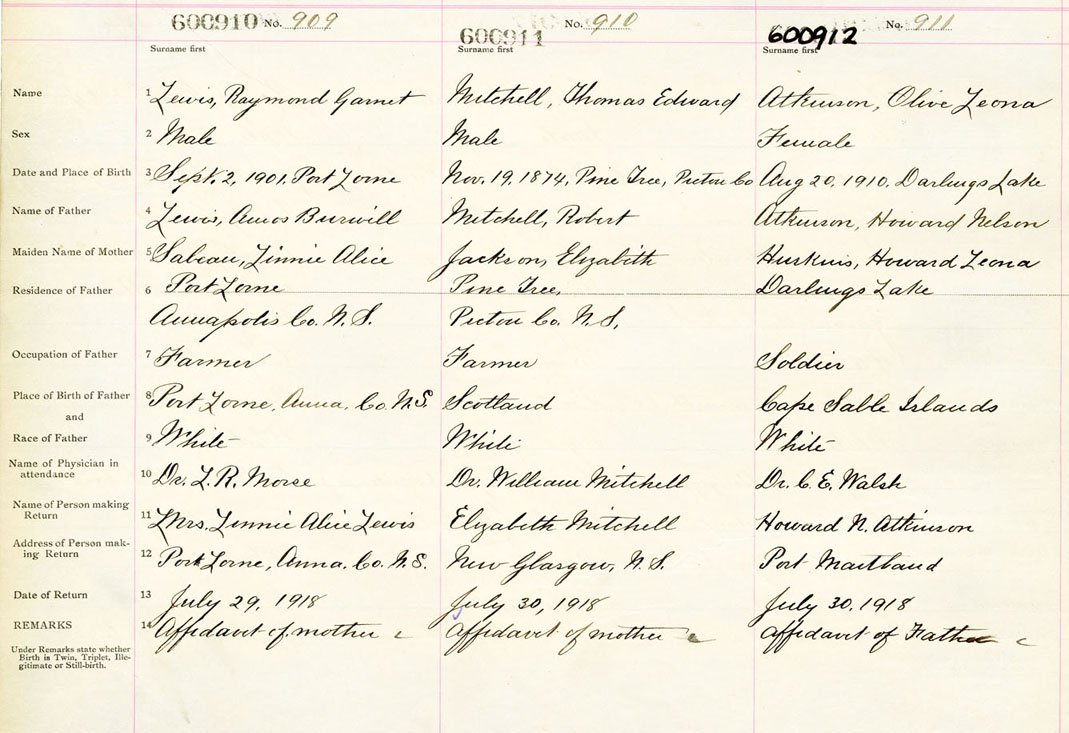 600910 No. 909
600911 No. 910
600912 No. 911
Surname first
Surname first
Surname first
Name 1 Lewis, Raymond Garnet Mitchell, Thomas Edward Atkinson, Olive Leona
Sex 2 Male Male Female
Date and Place of Birth 3 Sept. 2, 1901, Port Lorne Nov. 19, 1874, Pine Tree, Pictou Co Aug 20, 1910, Darlings Lake
Name of Father 4 Lewis, Amos Burwill Mitchell, Robert Atkinson, Howard Nelson
Maiden Name of Mother 5 Sabean, Linnie Alice Jackson, Elizabeth Huskins, Howard Leona
Residence of Father 6 Port Lorne Pine Tree, Darlings Lake
Annapolis Co. N.S. Pictou Co. N.S,
Occupation of Father 7 Farmer Farmer Soldier
Place of Birth of Father 8 Port Lorne, Anna. Co. N.S. Scotland Cape Sable Islands
and
Race of Father 9 White White White
Name of Physician in
attendance 10 Dr. L. R. Morse Dr. William Mitchell Dr. C. E. Walsh
Name of Person making
Return 11 Mrs. Linnie Alice Lewis Elizabeth Mitchell Howard N. Atkinson
Address of Person mak-
ing Return 12 Port Lorne, Anna. Co. N.S. New Glasgow, N.S. Port Maitland
Date of Return 13 July 29, 1918 July 30, 1918 July 30, 1918
REMARKS 14 Affidavit of mother Affidavit of mother Affidavit of Father
Under Remarks state whether
Birth is Twin, Triplet, Ille-
gitimate or Still-birth.